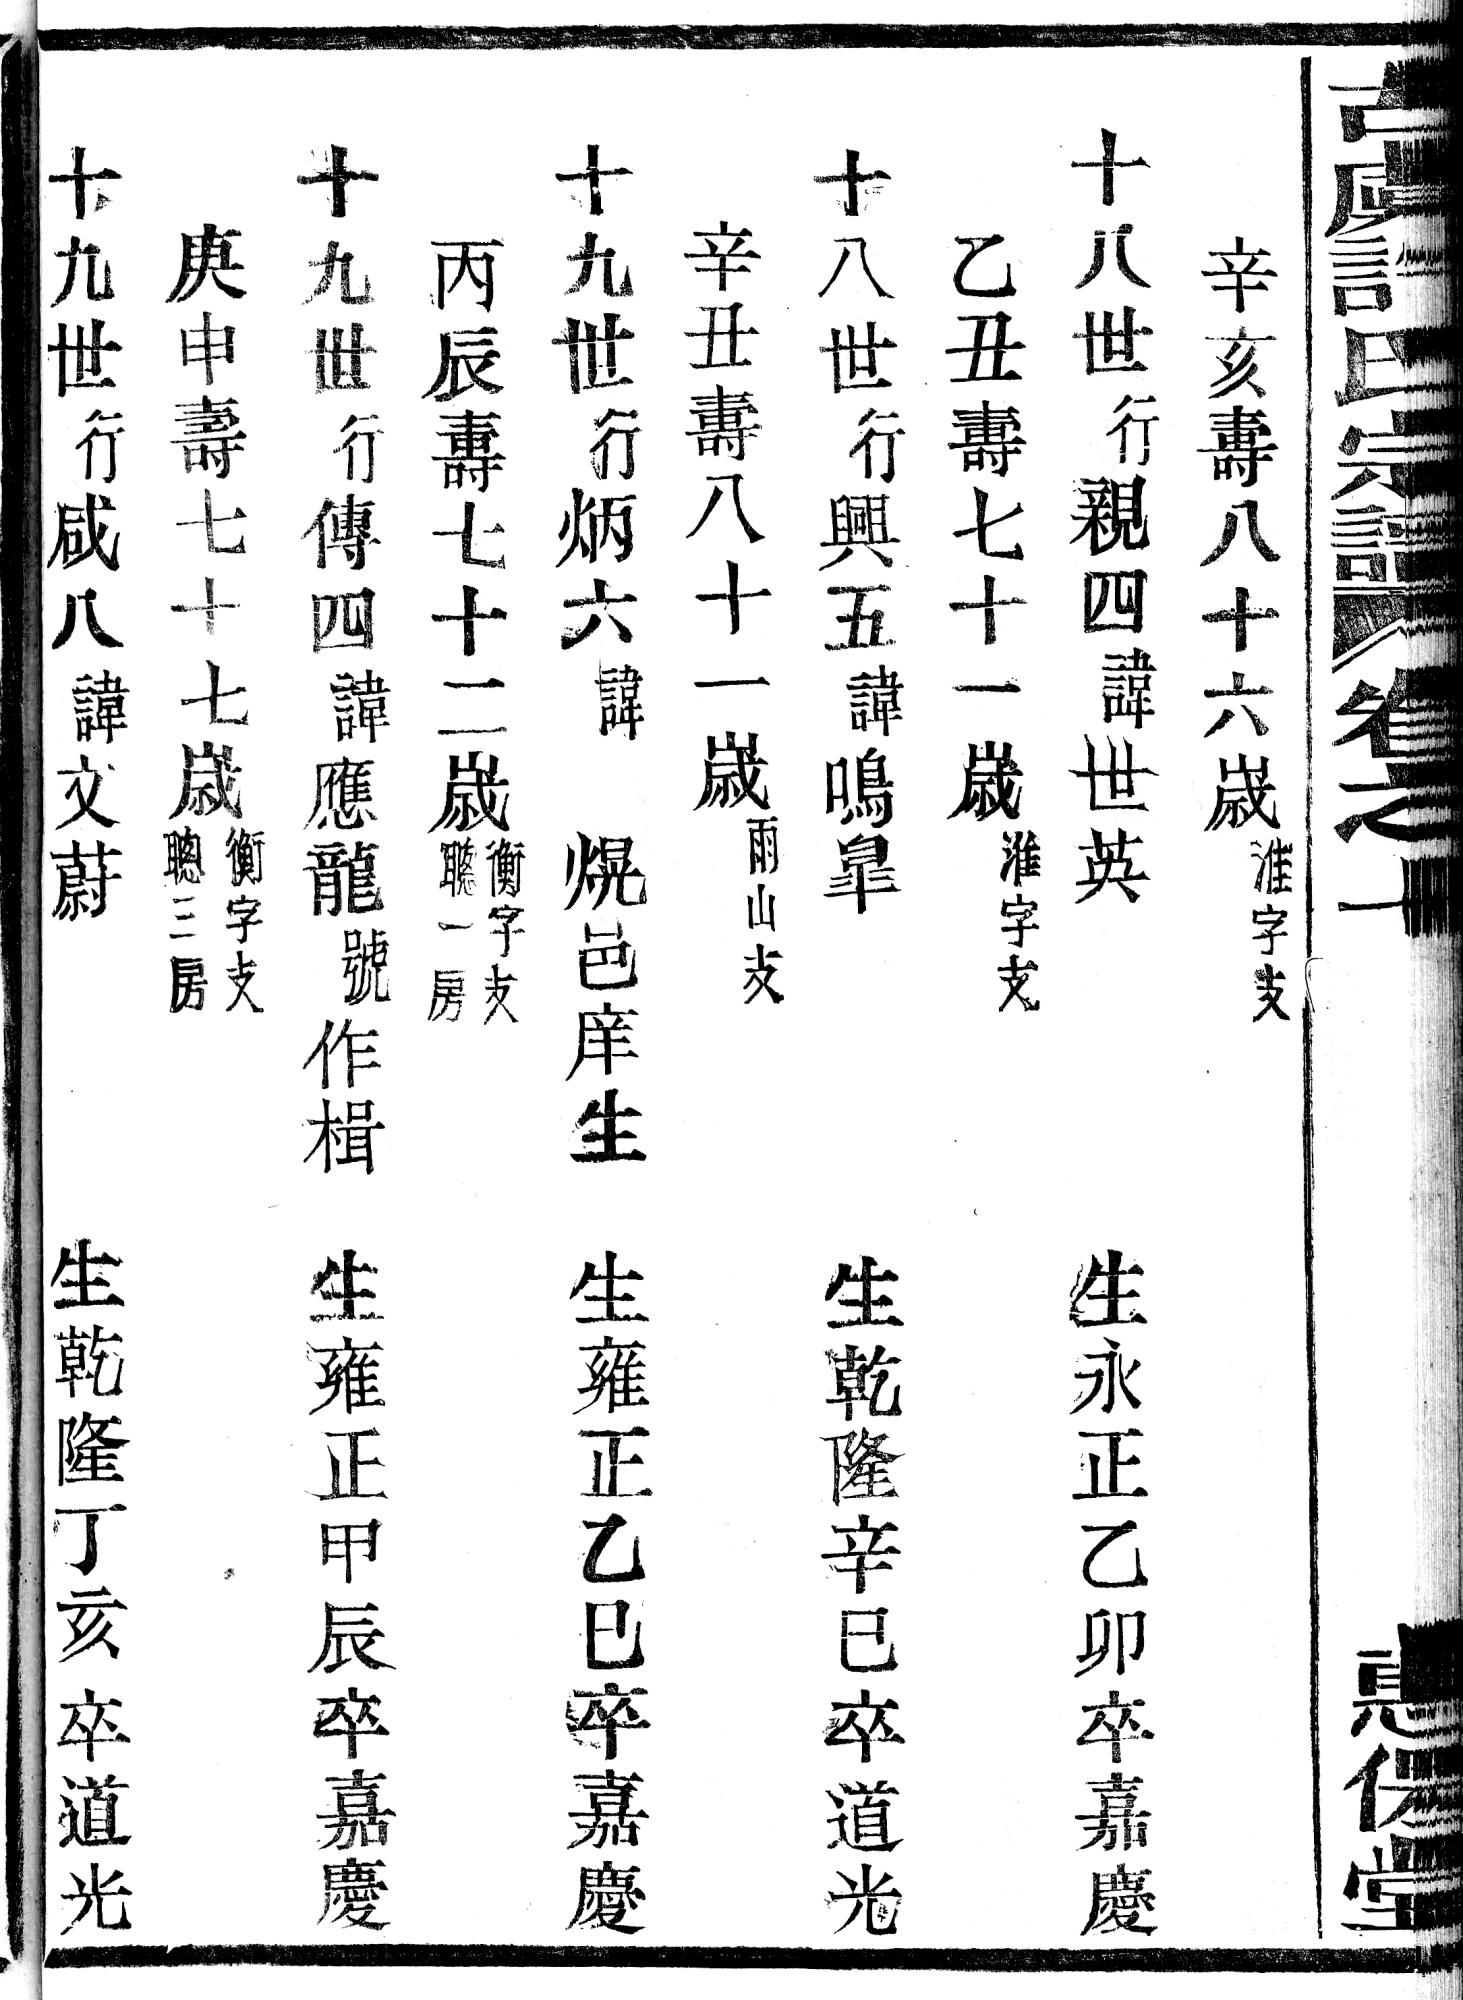 古虞許氏宗譜 卷之一 惠保堂
辛亥壽八十六歲淮字支
十八世行親四諱世英 生永正乙卯卒嘉慶
乙丑壽七十一歲淮字支
十八世行興五諱鳴臯 生乾隆辛巳卒道光
辛丑壽八十一歲雨山支
十九世行炳六諱 熀邑庠生 生雍正乙巳卒嘉慶
丙辰壽七十二歲衡字支
聽一房
十九世行傳四諱應龍號作楫 生雍正甲辰卒嘉慶
庚申壽七十七歲衡字支
聰三房
十九世行咸八諱文蔚 生乾隆丁亥卒道光